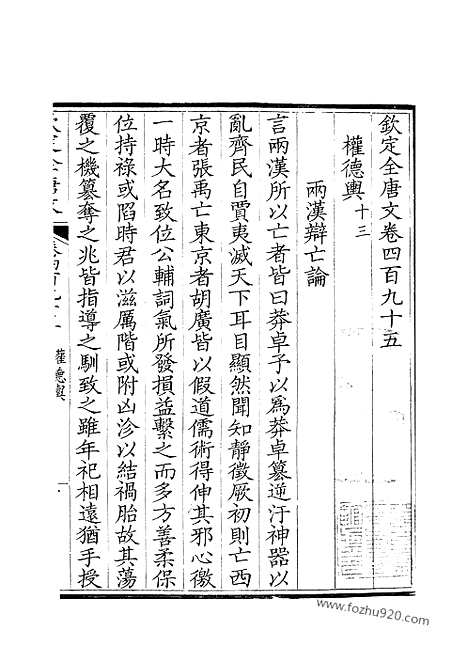 欽定全唐文卷四百九十五
權德輿十三
兩漢辯亡論
言兩漢所以亡者皆曰莽卓予以爲莽卓篡逆汙神器以
亂齊民自賈夷滅天下耳目顯然聞知靜徵厥初則亡西
京者張禹亡東京者胡廣皆以假道儒術得伸其邪心徼
一時大名致位公輔詞氣所發損益繫之而多方善柔保
位持祿或陷時君以滋厲階或附凶沴以結禍胎故其蕩
覆之機篡奪之兆皆指導之馴致之雖年祀相遠猶手授
權德輿
一
www.fozhu920.com